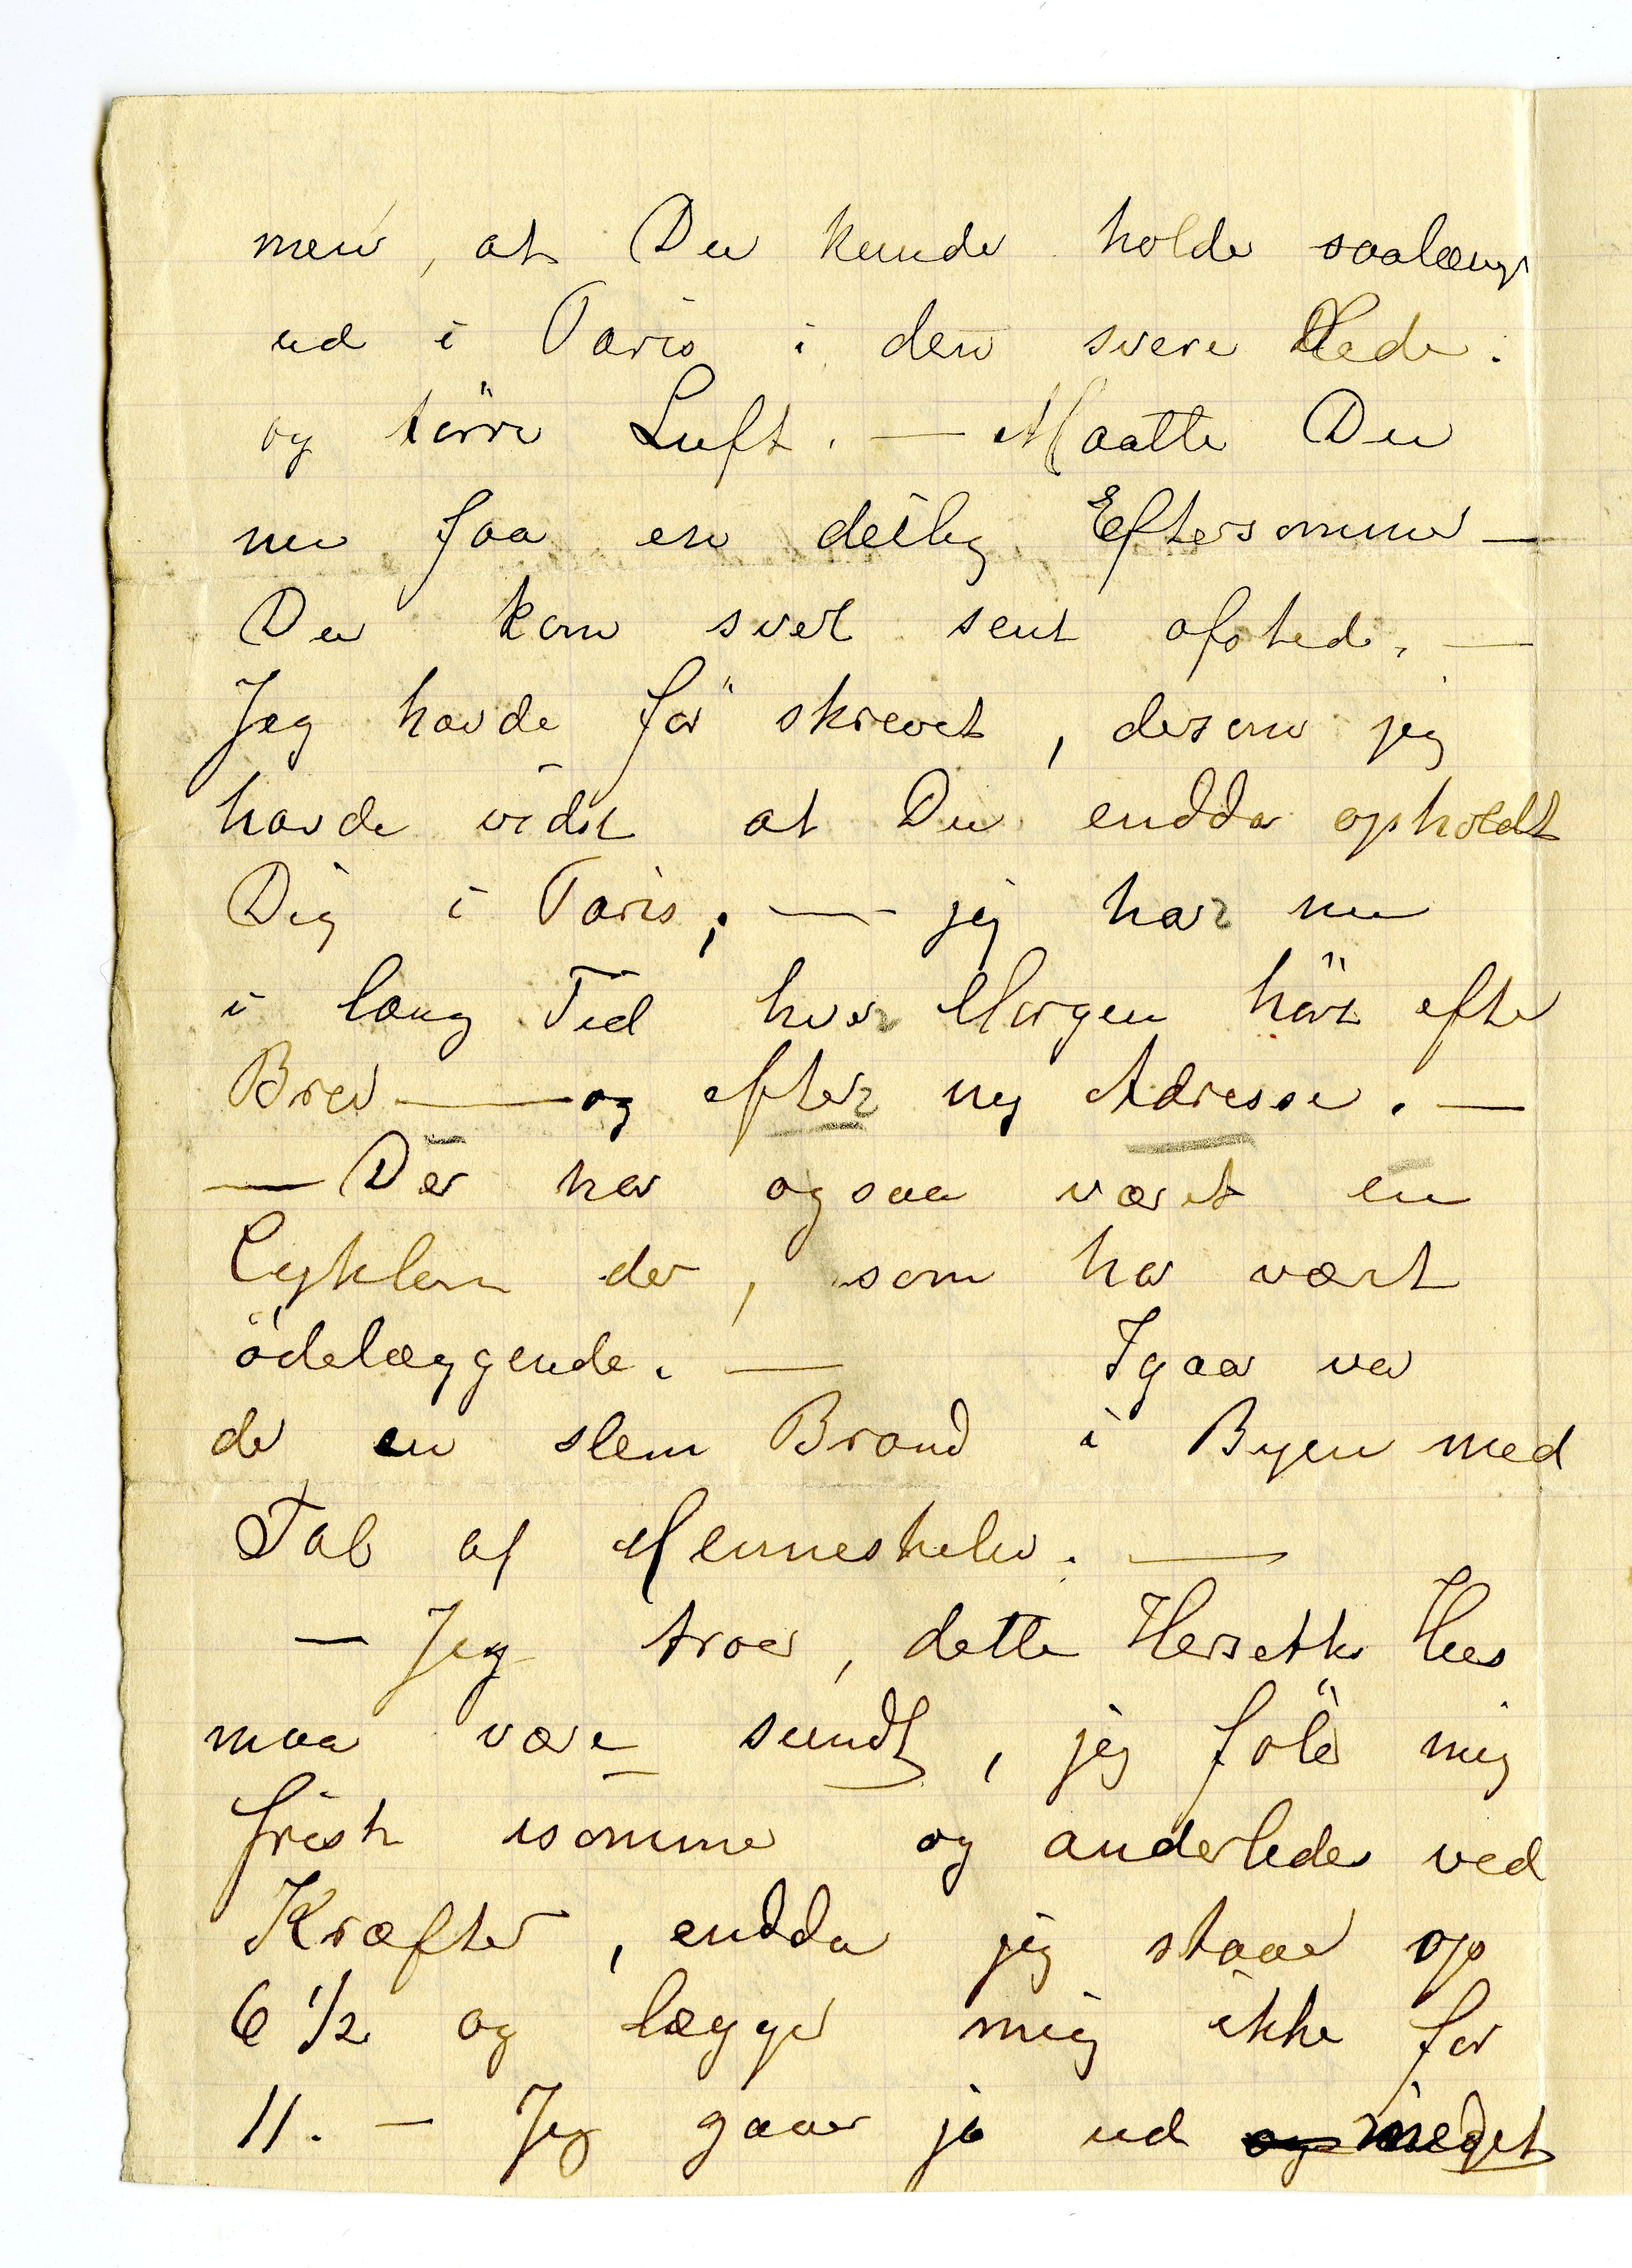 men, at Du kunde holde saalænge
ud i Paris i den svere Hede.
og törre Luft. — Maatte Du
nu faa en deilig Eftersommer —
Du kom svert sent afsted. —
Jeg havde för skrevet, dersom jeg
havde vidst at Du endda opholdt
Dig i Paris; — jeg har nu
i lang Tid hver Morgen hört efter
Brev — og efter ny Adresse. —
— Der har ogsaa været en
Cyklon der, som har vært
ödelæggende. — Igaar var
der en slem Brand i Byen med
Tab af Menneskeliv. —
— Jeg troer, dette Hersetks Hus
maa være sundt, jeg föler mig
frisk isommer og anderledes ved
Kræfter, endda jeg staaer op
6 1/2 og lægger mig ikke før
11. — Jeg gaaer jo ud og meget